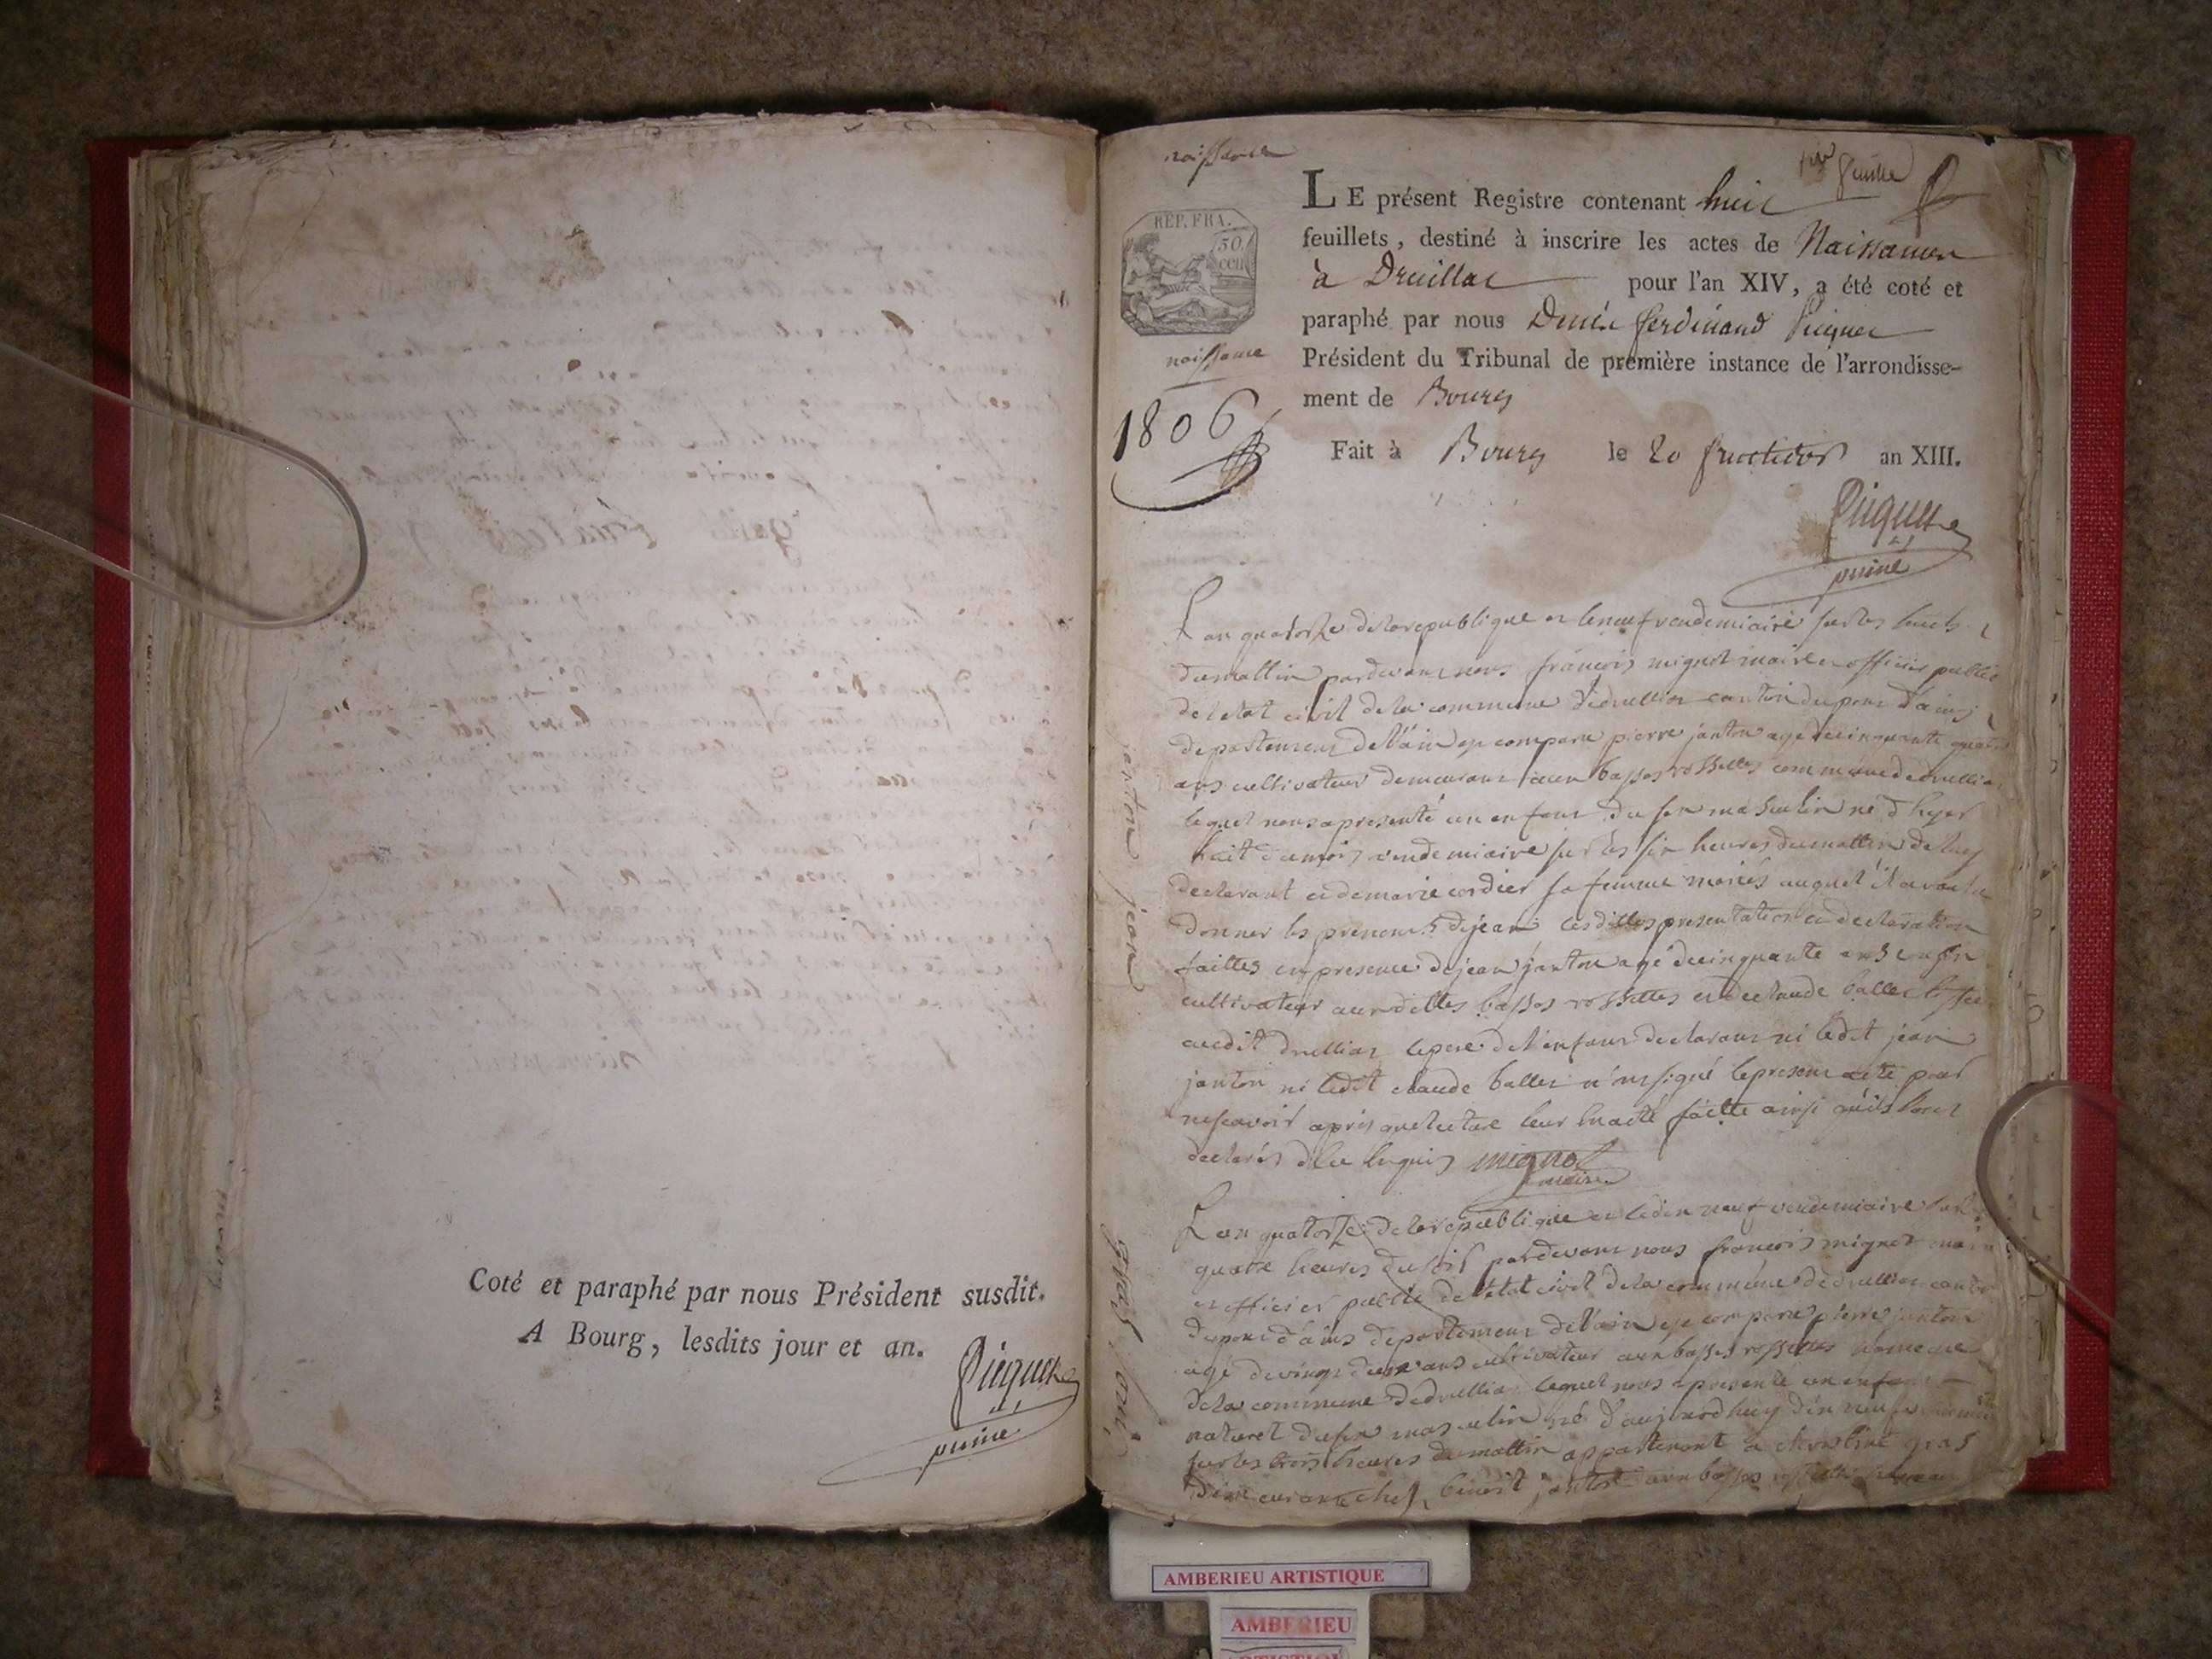 Coté et paraphé par nous Président susdit.
A Bourg, lesdits jour et an.
Picquet
puiné
naissance
1er feuillet
REP. FRA.
50
cen
naissance
1806
LE présent Registre contenant huit
feuillets, destiné à inscrire les actes de Naissances
à Druillat pour l'an XIV, a été coté et
paraphé par nous Denis ferdinand Picquet
Président du Tribunal de première instance de l'arrondisse-
ment de Bourg
Fait à Bourg le 20 fructidor an XIII.
Picquet
puiné
janton jean
L an quatorze de la republique et le neuf vendemiaire sur les huit
du mattin pardevant nous françois mignot maire et officier public
de letat civil de la commune de druillia canton du pont d'ains
departement de l'ain est comparu pierre janton agé de cinquante quatre
ans cultivateur demeurant aux basses rossettes commune de druillia
lequel nous a presenté un enfant du sex masculin né d hyer
huit du mois vendemiaire sur les six heures du mattin de luy
declarant et de marie cordier sa femme mariés auquel il a voulu
donner les prenoms de jean lesdittes presentation et declaration
faittes en presence de jean janton agé de cinquante ans
cultivateur auxdittes basses rossettes et de claude ballet
audit druillia le pere de l'enfant declarant ni ledit jean
janton ni ledit claude ballet n'ont signé le present acte pour
ne scavoir apres que lecture leur en a été faitte ainsi qu'ils l'ont
declarés de ce enquis mignot
maire
gras
L an quatorze de la republique et le dix neuf vendemiaire sur
quatre heures du soir pardevant nous françois mignot maire
et officier public de l'état civil de la commune de druillia canton
du pont d'ains departement de l'ain est comparu pierre janton
agé de vingt deux ans cultivateur aux basses rossettes hameau
de la commune de druillia lequel nous a presenté un enfant
naturel du sex masculin né d'aujourdhuy dix neuf
sur les trois heures du mattin appartenant a christine gras
demeurante chez benoit janton aux basses rossettes hameau
AMBERIEU ARTISTIQUE
AMBERIEU
ARTISTIQUE